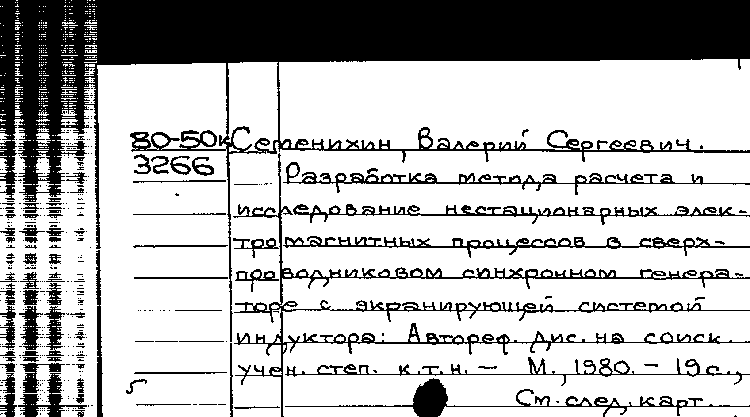 80-50к Семенихин, Валерий Сергеевич.
3266 Разработка метода расчета и
исследование нестационарных элек-
тромагнитных процессов в сверх-
проводниковом синхронном генера-
торе с экранирующей системой
индуктора: Автореф. дис. на соиск.
учен. степ. к.т.н. — М., 1980. — 19 с.,
См. след. карт.